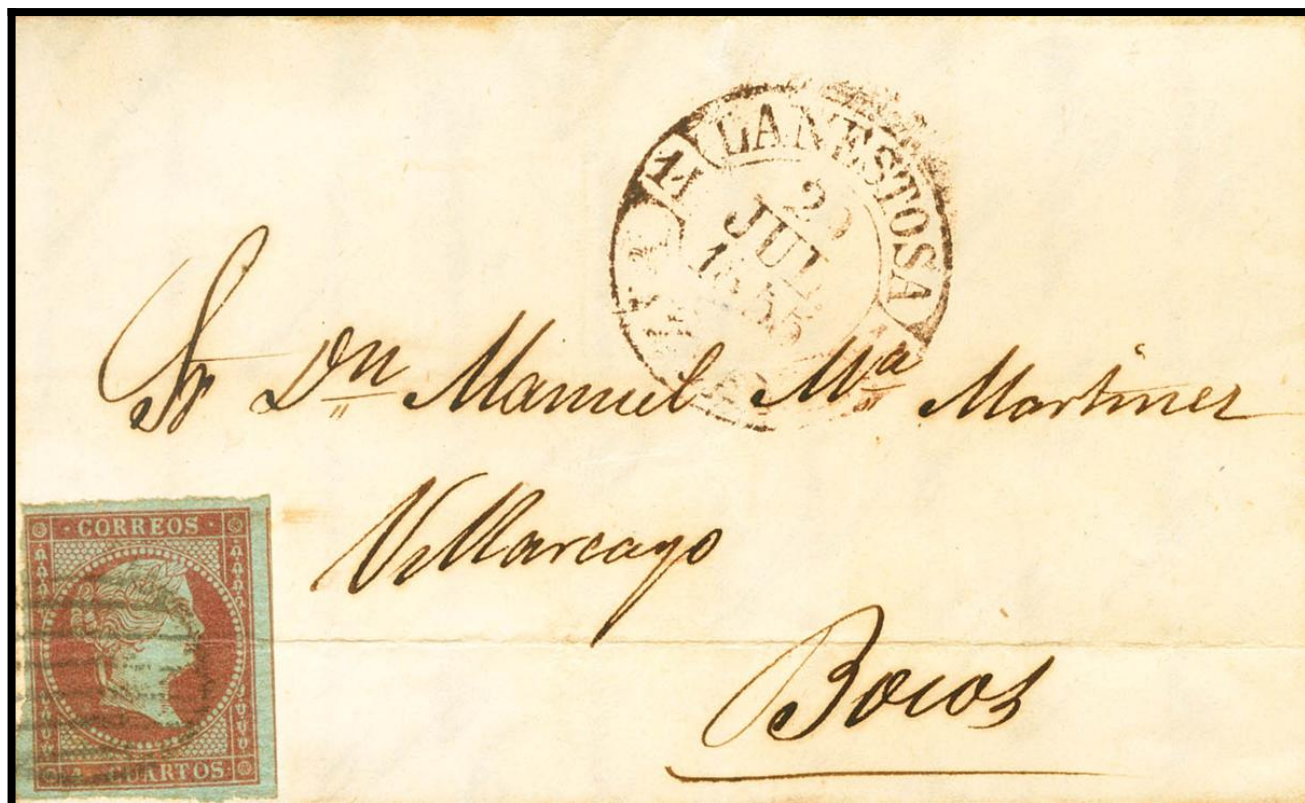 LANESTOSA
JUL
1855
Sr Dn Manuel Ma Martinez
Villarcayo
CORREOS
Bocos
CUARTOS